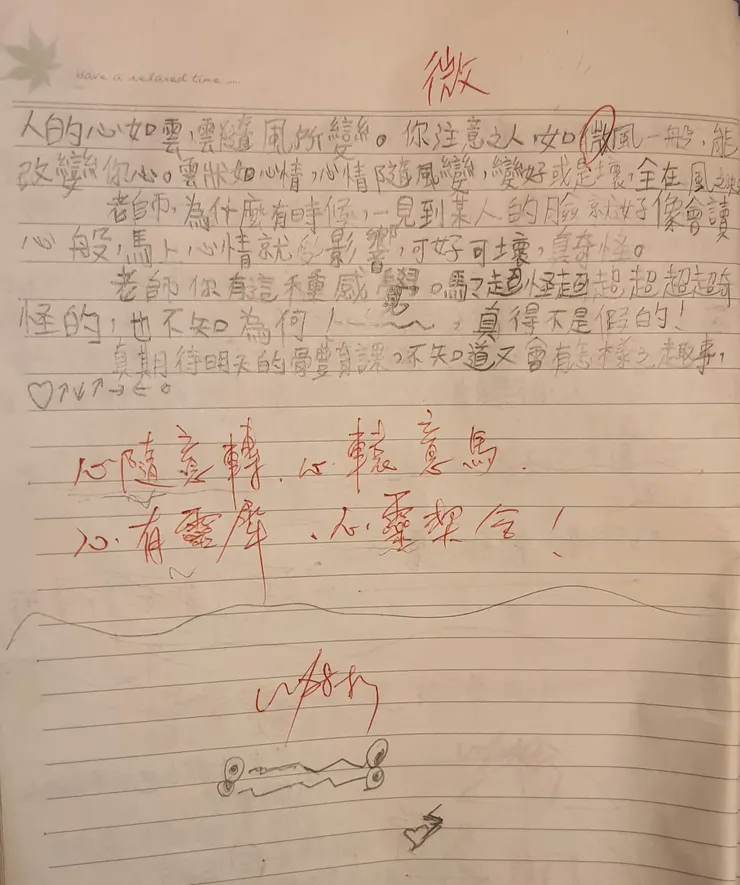 Have a relaxed time ....
微
人的心如雲,雲隨風所變。你注意之人,如微風一般,能
改變你心。雲狀如心情,心情隨風變,變好或是壞,全在風之
老師,為什麼有時候,一見到某人的臉就好像會讀
心般,馬上心情就受影響,可好可壞,真奇怪。
老師你有這種感覺。超怪超超超超奇
怪的,也不知為何!~~~,真得不是假的!
真期待明天的體育課,不知道又會有怎樣之趣事,
♡↑↓↑→←。
心隨意轉、心猿意馬.
心有靈犀、心靈契合!